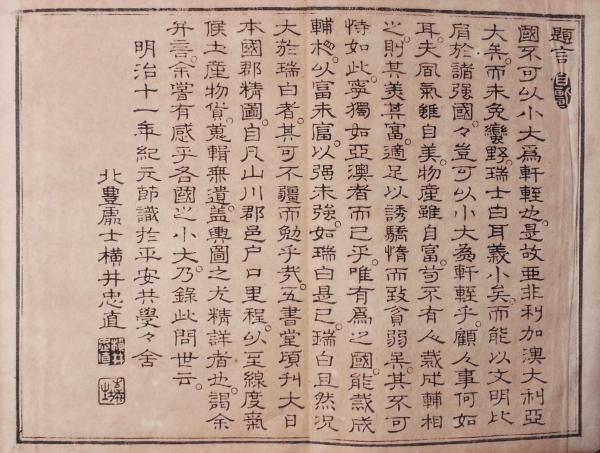 題言
國不可以小大爲軒輊也。是故亜非利加澳大利亞
大矣。而未免蠻野。瑞士白耳義小矣。而能以文明比
肩於諸强國々。豈可以小大爲軒輊乎。顧人事何如
耳。夫風氣雖自美。物産雖自富。苟不有人裁成輔相
之。則其美其富。適足以誘驕惰而致貧弱矣。其不可
恃如此。寧獨如亞澳者而已乎。唯有爲之國。能裁成
輔相。以富未富。以强未強。如瑞白是已。瑞白且然。況
大於瑞白者。其可不疆而勉乎哉。五書堂頃刋大日
本國郡精圖。自凡山川郡邑户口里程。以至線度氣
候土産物貨。蒐輯無遺。盖輿圖之尤精詳者也。謁余
弁言。余嘗有感乎各國之小大。乃錄此問世云。
明治十一年紀元節識於平安共學々舍
北豊處士横井忠直